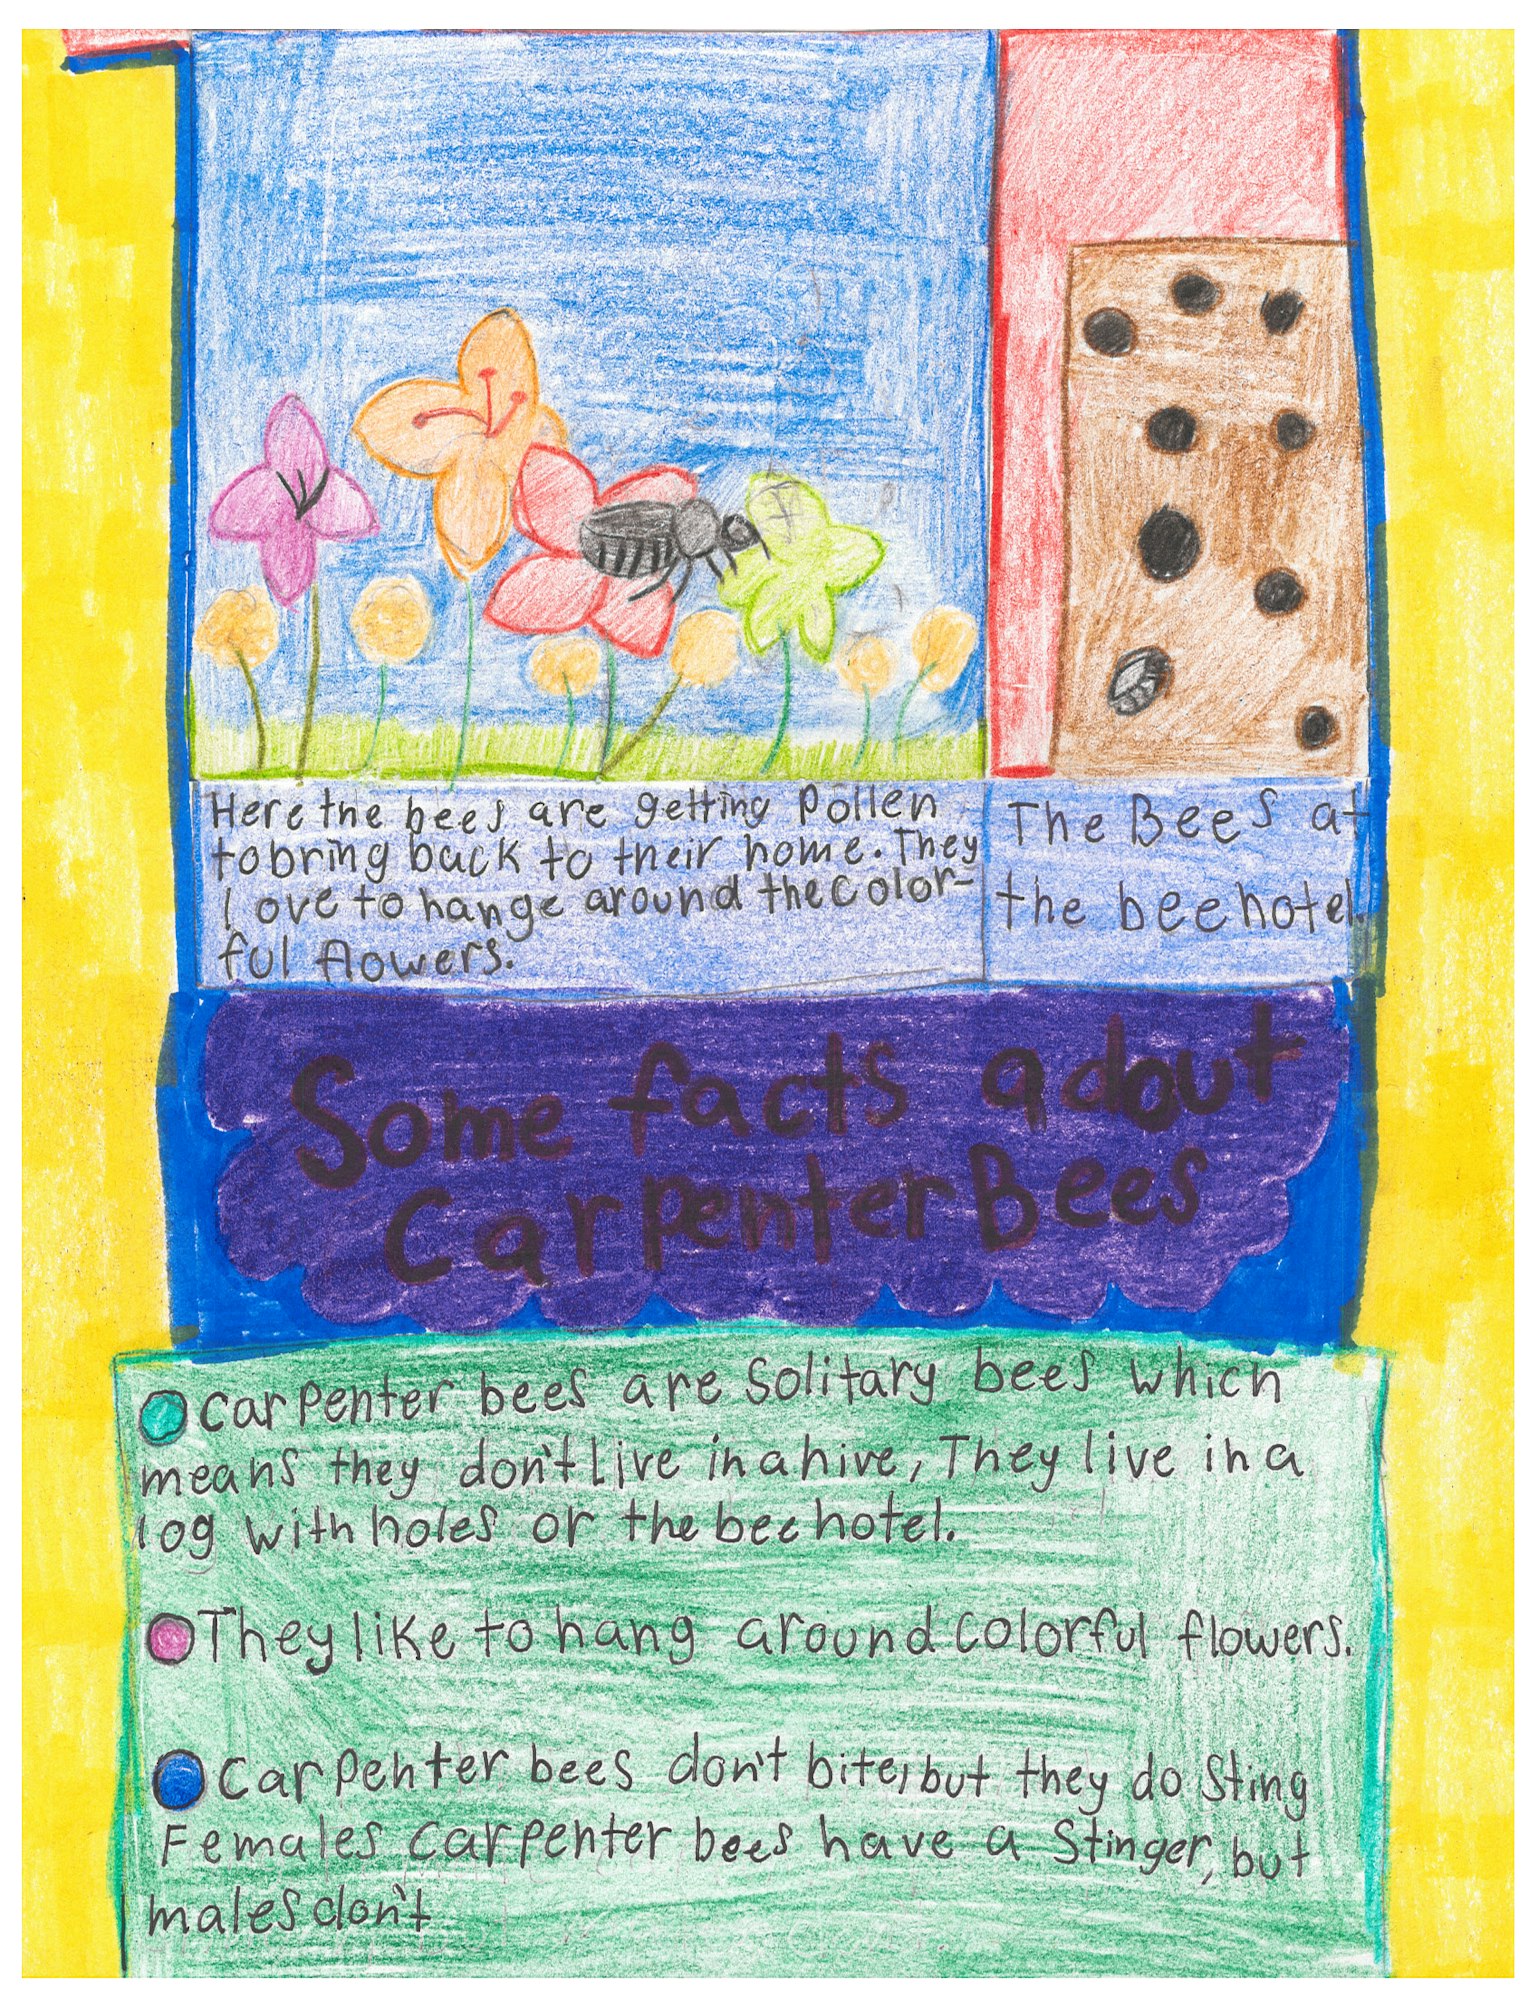 Here the bees are getting pollen
to bring back to their home. They
love to hange around the color-
ful flowers.
The Bees at
the bee hotel.
Some facts adout
Carpenter Bees
Carpenter bees are solitary bees which
means they don't live in a hive, They live in a
log with holes or the bee hotel.
They like to hang around colorful flowers.
Carpenter bees don't bite, but they do sting
Females carpenter bees have a stinger, but
males don't